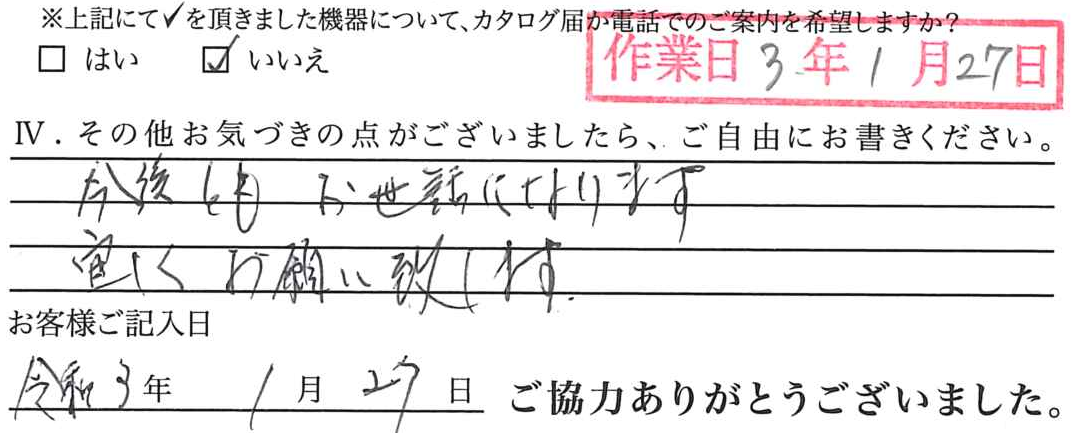 ※上記にて✓を頂きました機器について、カタログ届か電話でのご案内を希望しますか?
□ はい ☑ いいえ
作業日 3年1月27日
Ⅳ．その他お気づきの点がございましたら、ご自由にお書きください。
今後とも お世話になります
宜しく お願い致します.
お客様ご記入日
令和3年 1月27日 ご協力ありがとうございました。